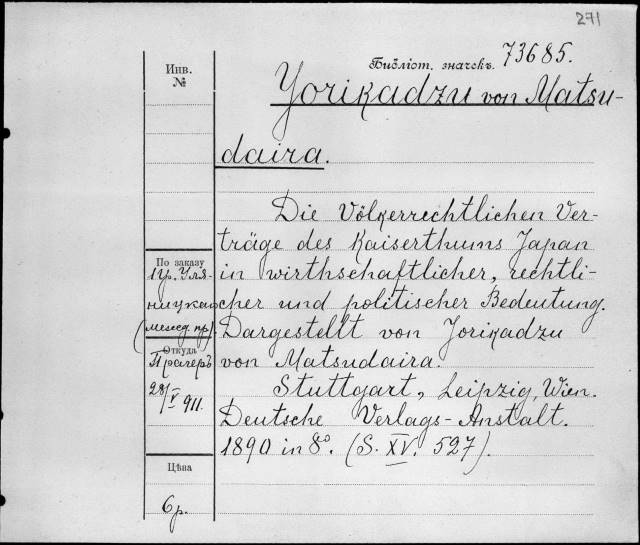 271
Библіот. значекъ. 73685.
Yorikadzu von Matsu-
daira.
Die Völkerrechtlichen Ver-
träge des Kaiserthums Japan
in wirthschaftlicher, rechtli-
cher und politischer Bedeutung.
Dargestellt von Yorikadzu
von Matsudaira.
Stuttgart, Leipzig, Wien.
Deutsche Verlags-Anstalt.
1890 in 8º. (S. XV. 527).
Инв.
№
По заказу
Уля-
ницкаго
Откуда
Прагеръ
28/V 911.
Цѣва
6р.